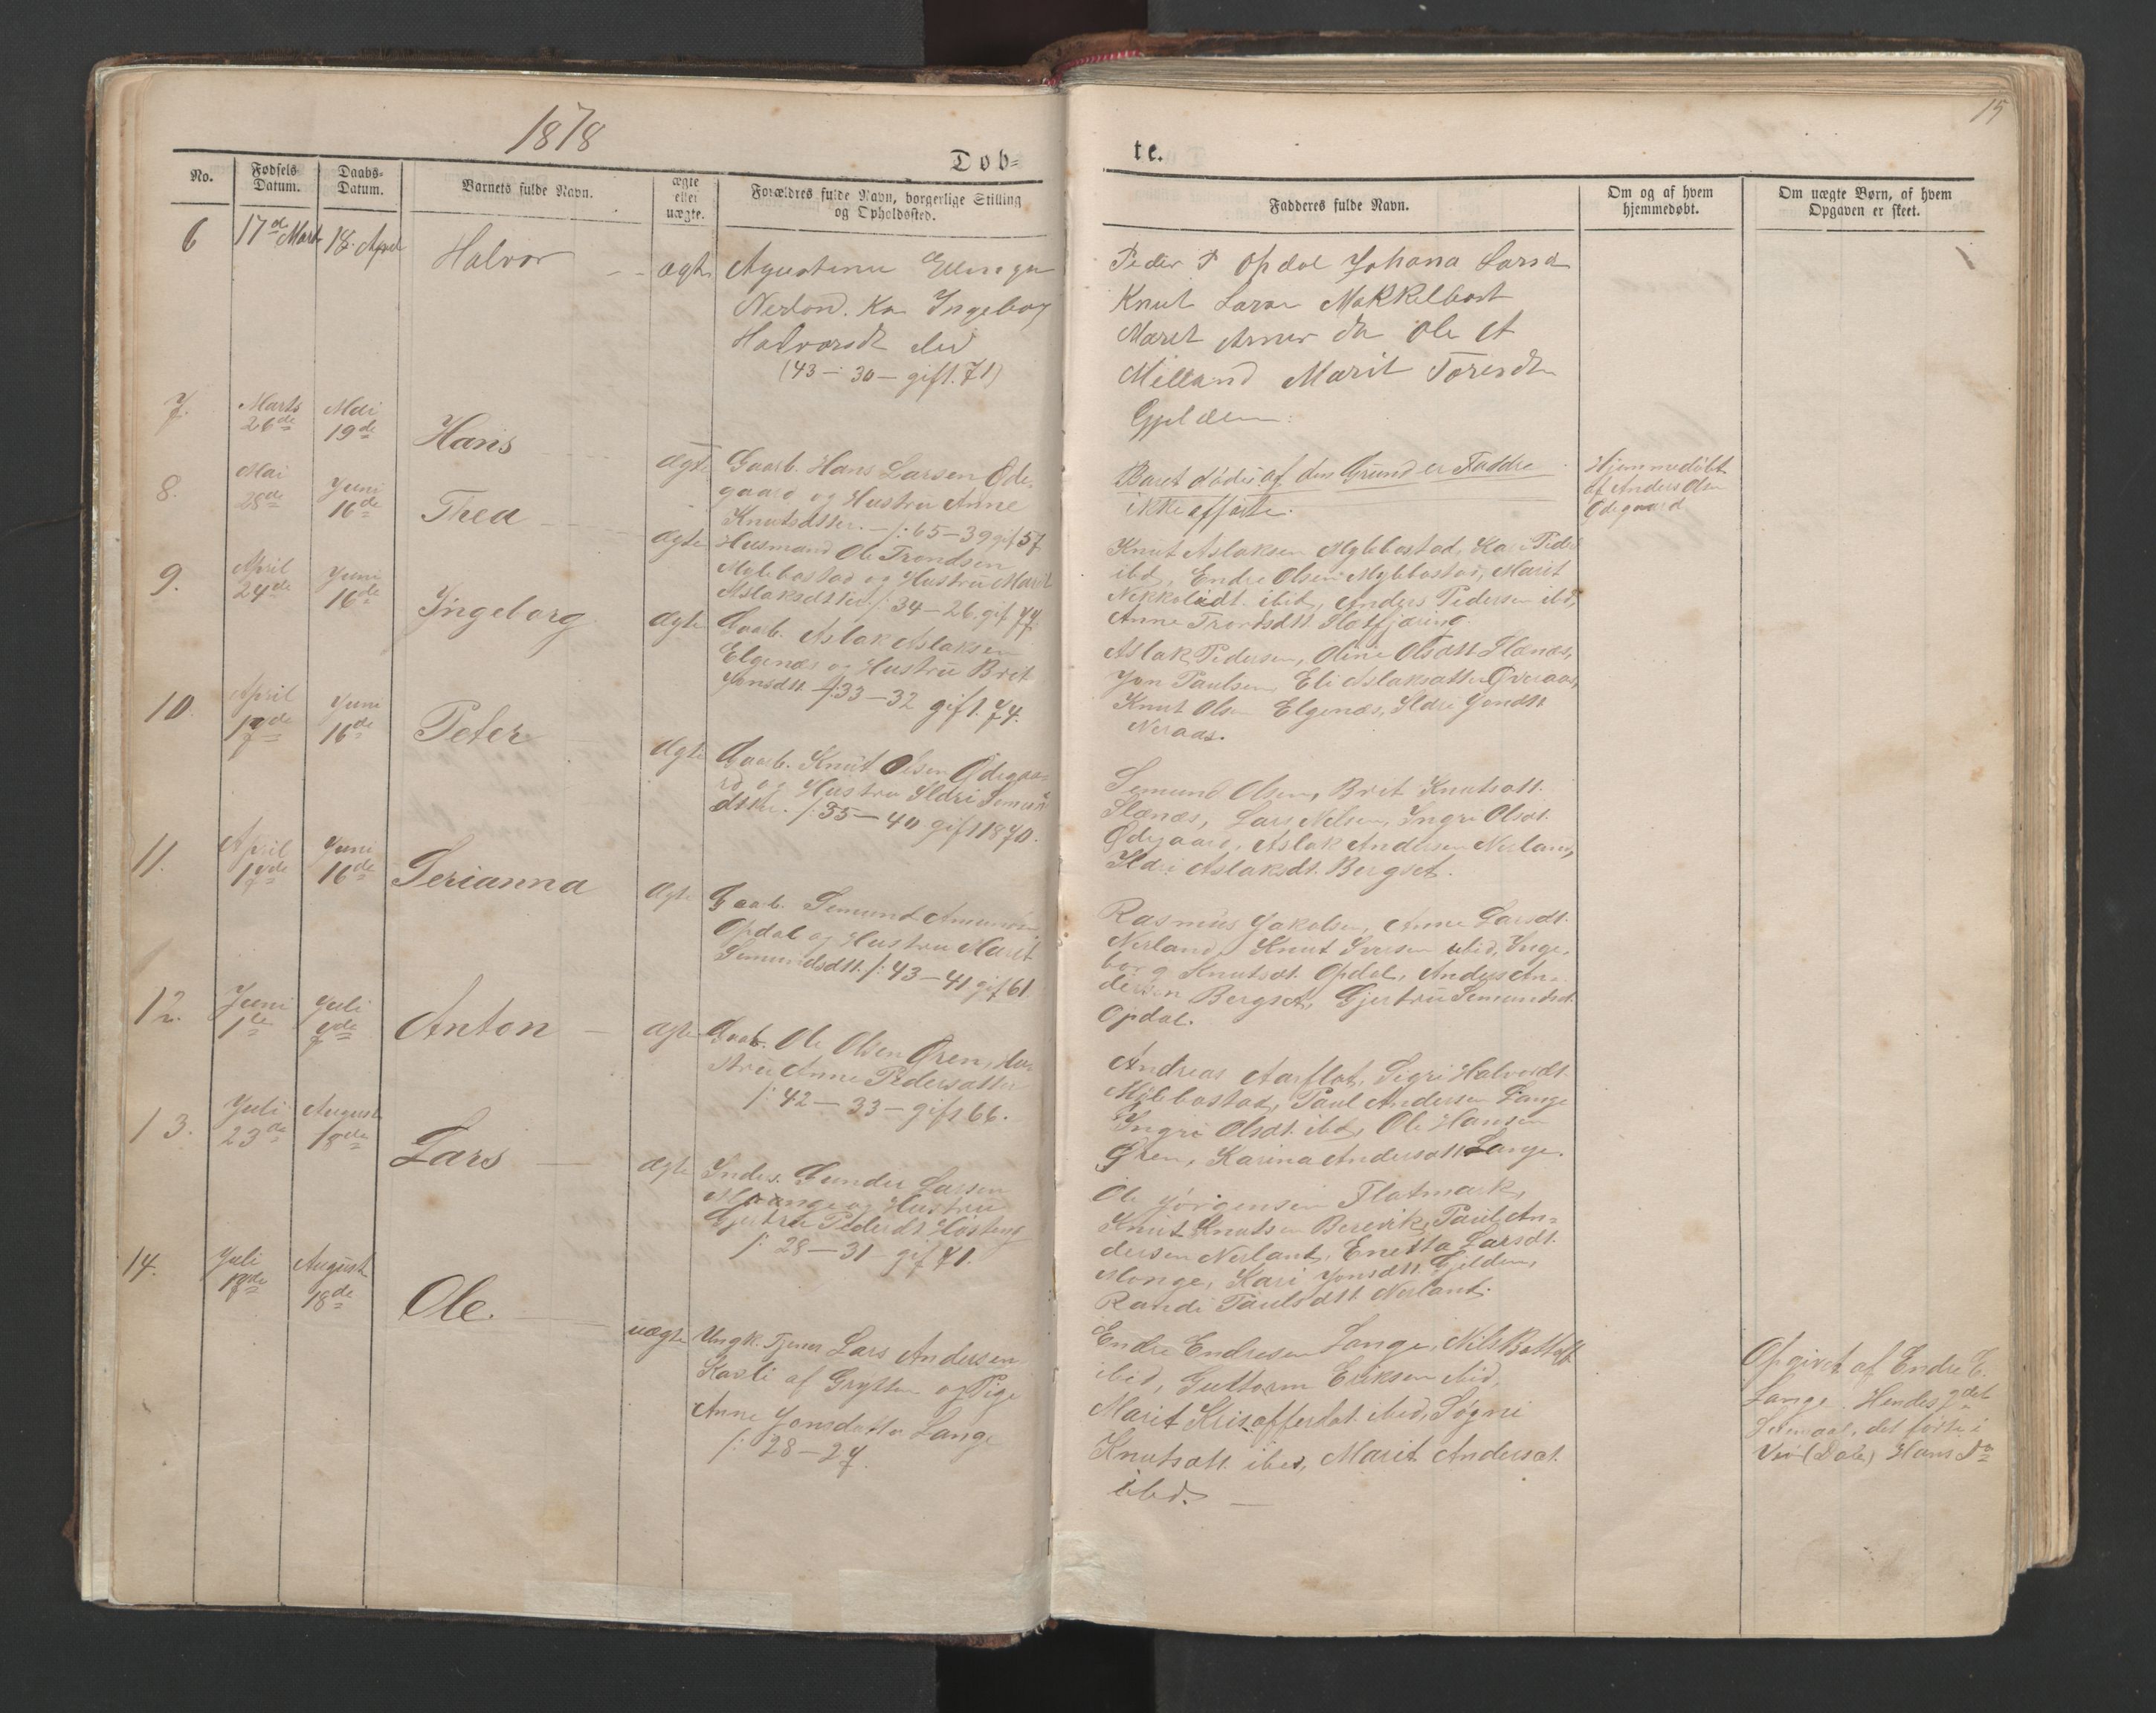 1878
15
Døb=
te.
No.
Fødsels
Datum.
Daabs-
Datum.
Barnets fulde Navn.
ægte
eller
uægte.
Forældres fulde Navn, borgerlige Stilling
og Opholdssted.
Fadderes fulde Navn.
Om og af hvem
hjemmedøbt.
Om uægte Børn, af hvem
Opgaven er skeet.
6
17de Marts
18. April
Halvor
ægte
Ingebor
Halvorsdt
(43 - 30 - gift. 71)
Peder P Opdal Johana Larsd
Knut Larsen Mekkelbost
Maret Ole A
Melland Marit Toresdtr
7.
Marts
26de
Mai
19de
Hans
ægte
Gaarb. Hans Larsen Øde-
gaard og Hustru Anne
Knutsdtter. - /: 65 - 39 gif 57
Baret døde af den Grund er Faddre
ikke
Hjemmedøbt
af Anders Olsen
Ødegaard
8.
Mai
28de
Juni
16de
Thea
ægte
Husmand Ole Trondsen
Myklebostad og Hustru Marit
Aslaksdtter /: 34 - 26. gif 77.
Knut Aslaksen Myklebostad, Kari Peds
ibd, Endre Olsen Myklebostad, Marit
ibid, Anders Pedersen ibd,
Anne Trondsdtt.
9.
April
24de
Juni
16de
Ingeborg
ægte
Gaarb. Aslak Aslaksen
Elgenæs og Hustru Brit
Jonsdtt /: 33 - 32 gift. 74.
Aslak Pedersen, Oline Olsdtt
Jon Paulsen, Eli Aslaksdtter Øveraas,
Knut Olsen Elgenæs, Ildri Jonsdtt
Neraas.
10.
April
17de
Juni
16de
Peter
ægte
Gaarb. Knut Olsen Ødegaa-
rd og Hustru Ildri Semun
dtter. /: 35 - 40 gift 1870.
Semund Olsen, Brit Knutsdtt.
Lars Nilsen, Ingri Olsdt.
Ødegaard, Aslak Andersen Nerland,
Ildri Aslaksdt. Bergset.
11.
April
Juni
16de
Serianna
ægte
Gaarb. Semund
Opdal og Hustru Marit
Semundsdtt. /: 43 - 41 gif 61
Rasmus Jakobsen, Anne Larsdt.
Nerland, Knut Iversen ibid, Inge-
borg Knutsdt. Opdal, Anders An-
dersen Bergset, Gjertru Semundsd.
Opdal.
12.
Juni
1te
Juli
7de
Anton
ægte
Gaarb. Ole Olsen Øren, Hu-
stru Anne Pedersdtter
/: 42 - 33 - gift 66.
Andreas Aarflot, Sigri Halvorsdt.
Myklebostad, Paul Andersen Lange
Ingri Olsdt. ibd, Ole Hansen
Øren, Karina Andersdtt Lange.
13.
Juli
23de
August
18de
Lars
ægte
Inders. Gunder Larsen
Monge og Hustru
Gjertru Pedersdt
/: 28 - 31 - gif 71.
Ole Jørgensen Flatmark,
Knut Knutsen Berevik, Paul An-
dersen Nerland, Enetta Larsdt.
Monge, Kari Jonsdtt.
Randi Paulsdtt Nerland.
14.
Juli
August
18de
Ole.
uægte
Ungk. Tjener Lars Andersen
Kavli af Grytten og Pige
Anne Jonsdatter Lange
/: 28 - 27.
Endre Endresen Lange, Nils
ibid, Guttorm Eriksen ibid,
Marit Kristoffersdt. ibid, Søgni
Knutsdtt. ibid, Marit Andersdt.
ibid.
Opgivet af Endre E.
Lange. Hendes 2det
det første i
Hans